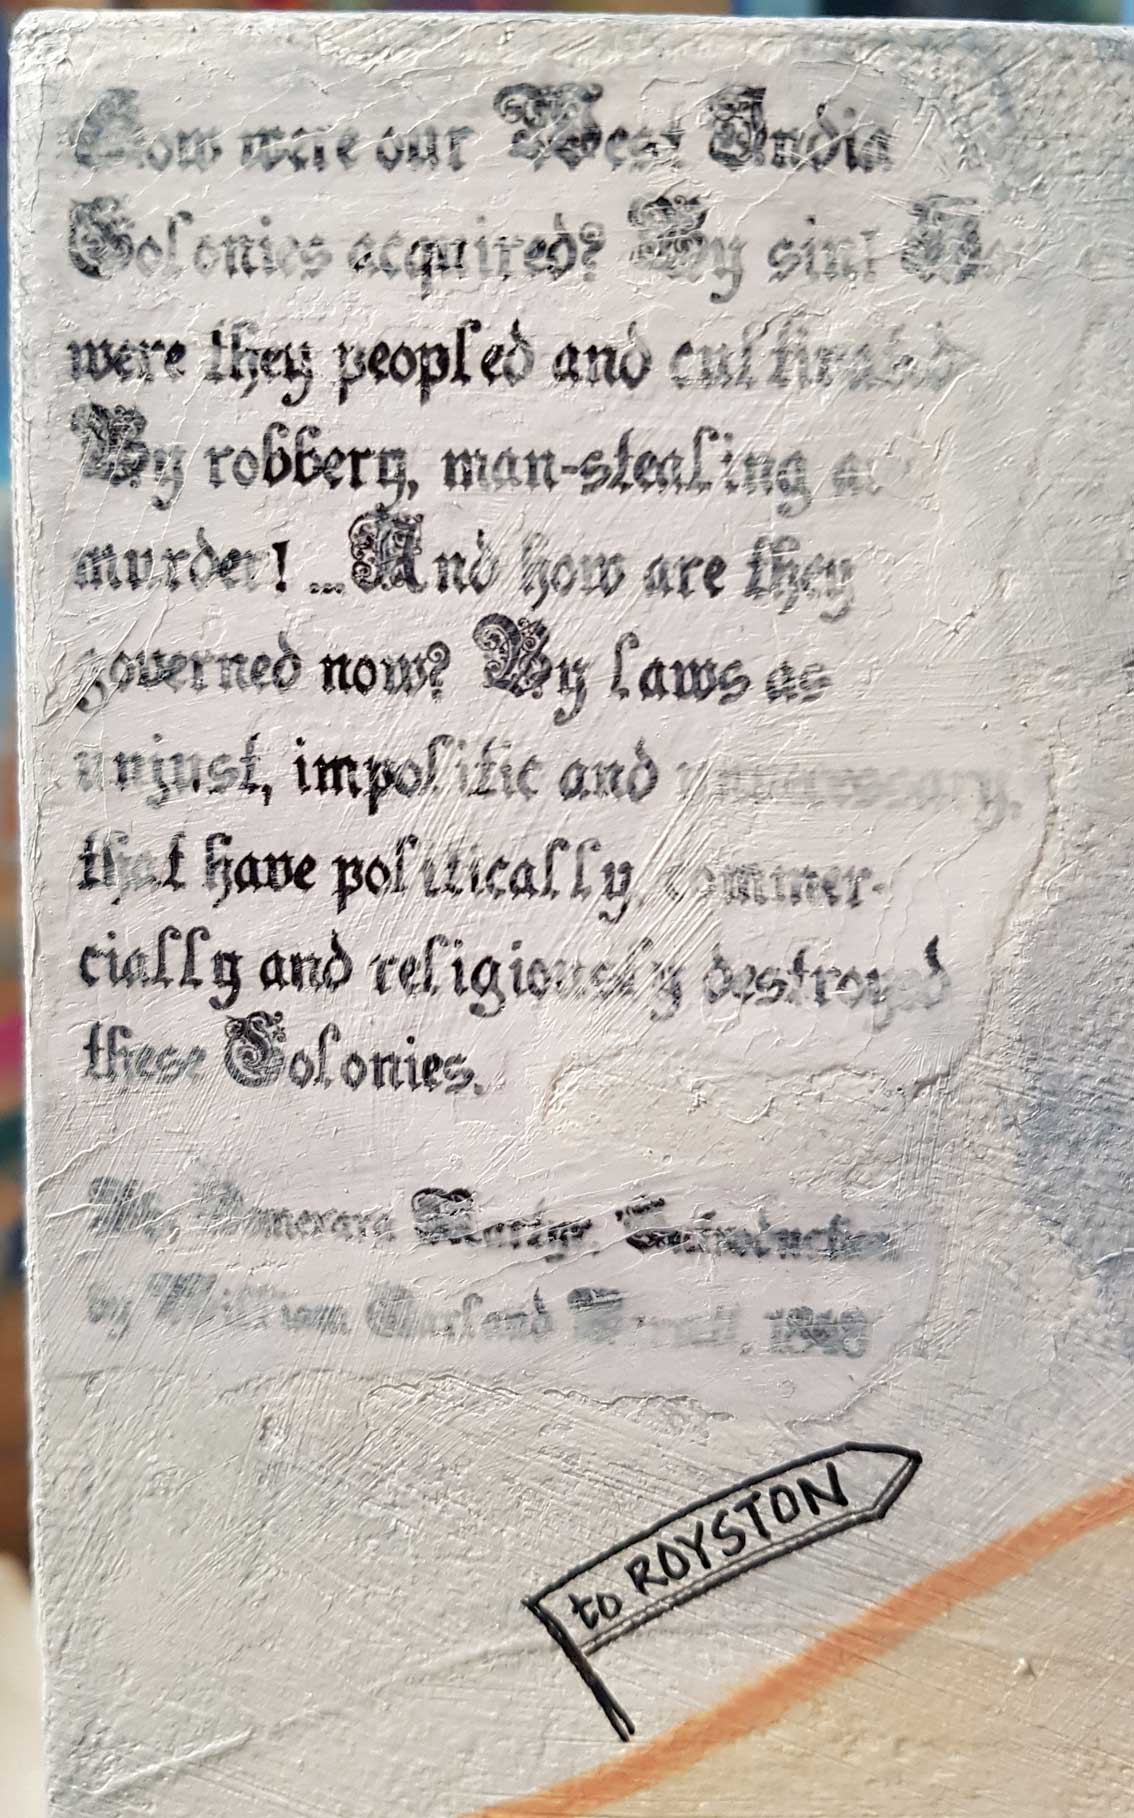 How were our West India
Colonies acquired? By sin!
were they peopled and cultivated
By robbery, man-stealing
murder! ...And how are they
governed now? By laws as
unjust, impolitic and
that have politically, commer-
cially and religiously destroyed
these Colonies.
Demerara Martyr, Introduction
by William Garland 1848
to ROYSTON